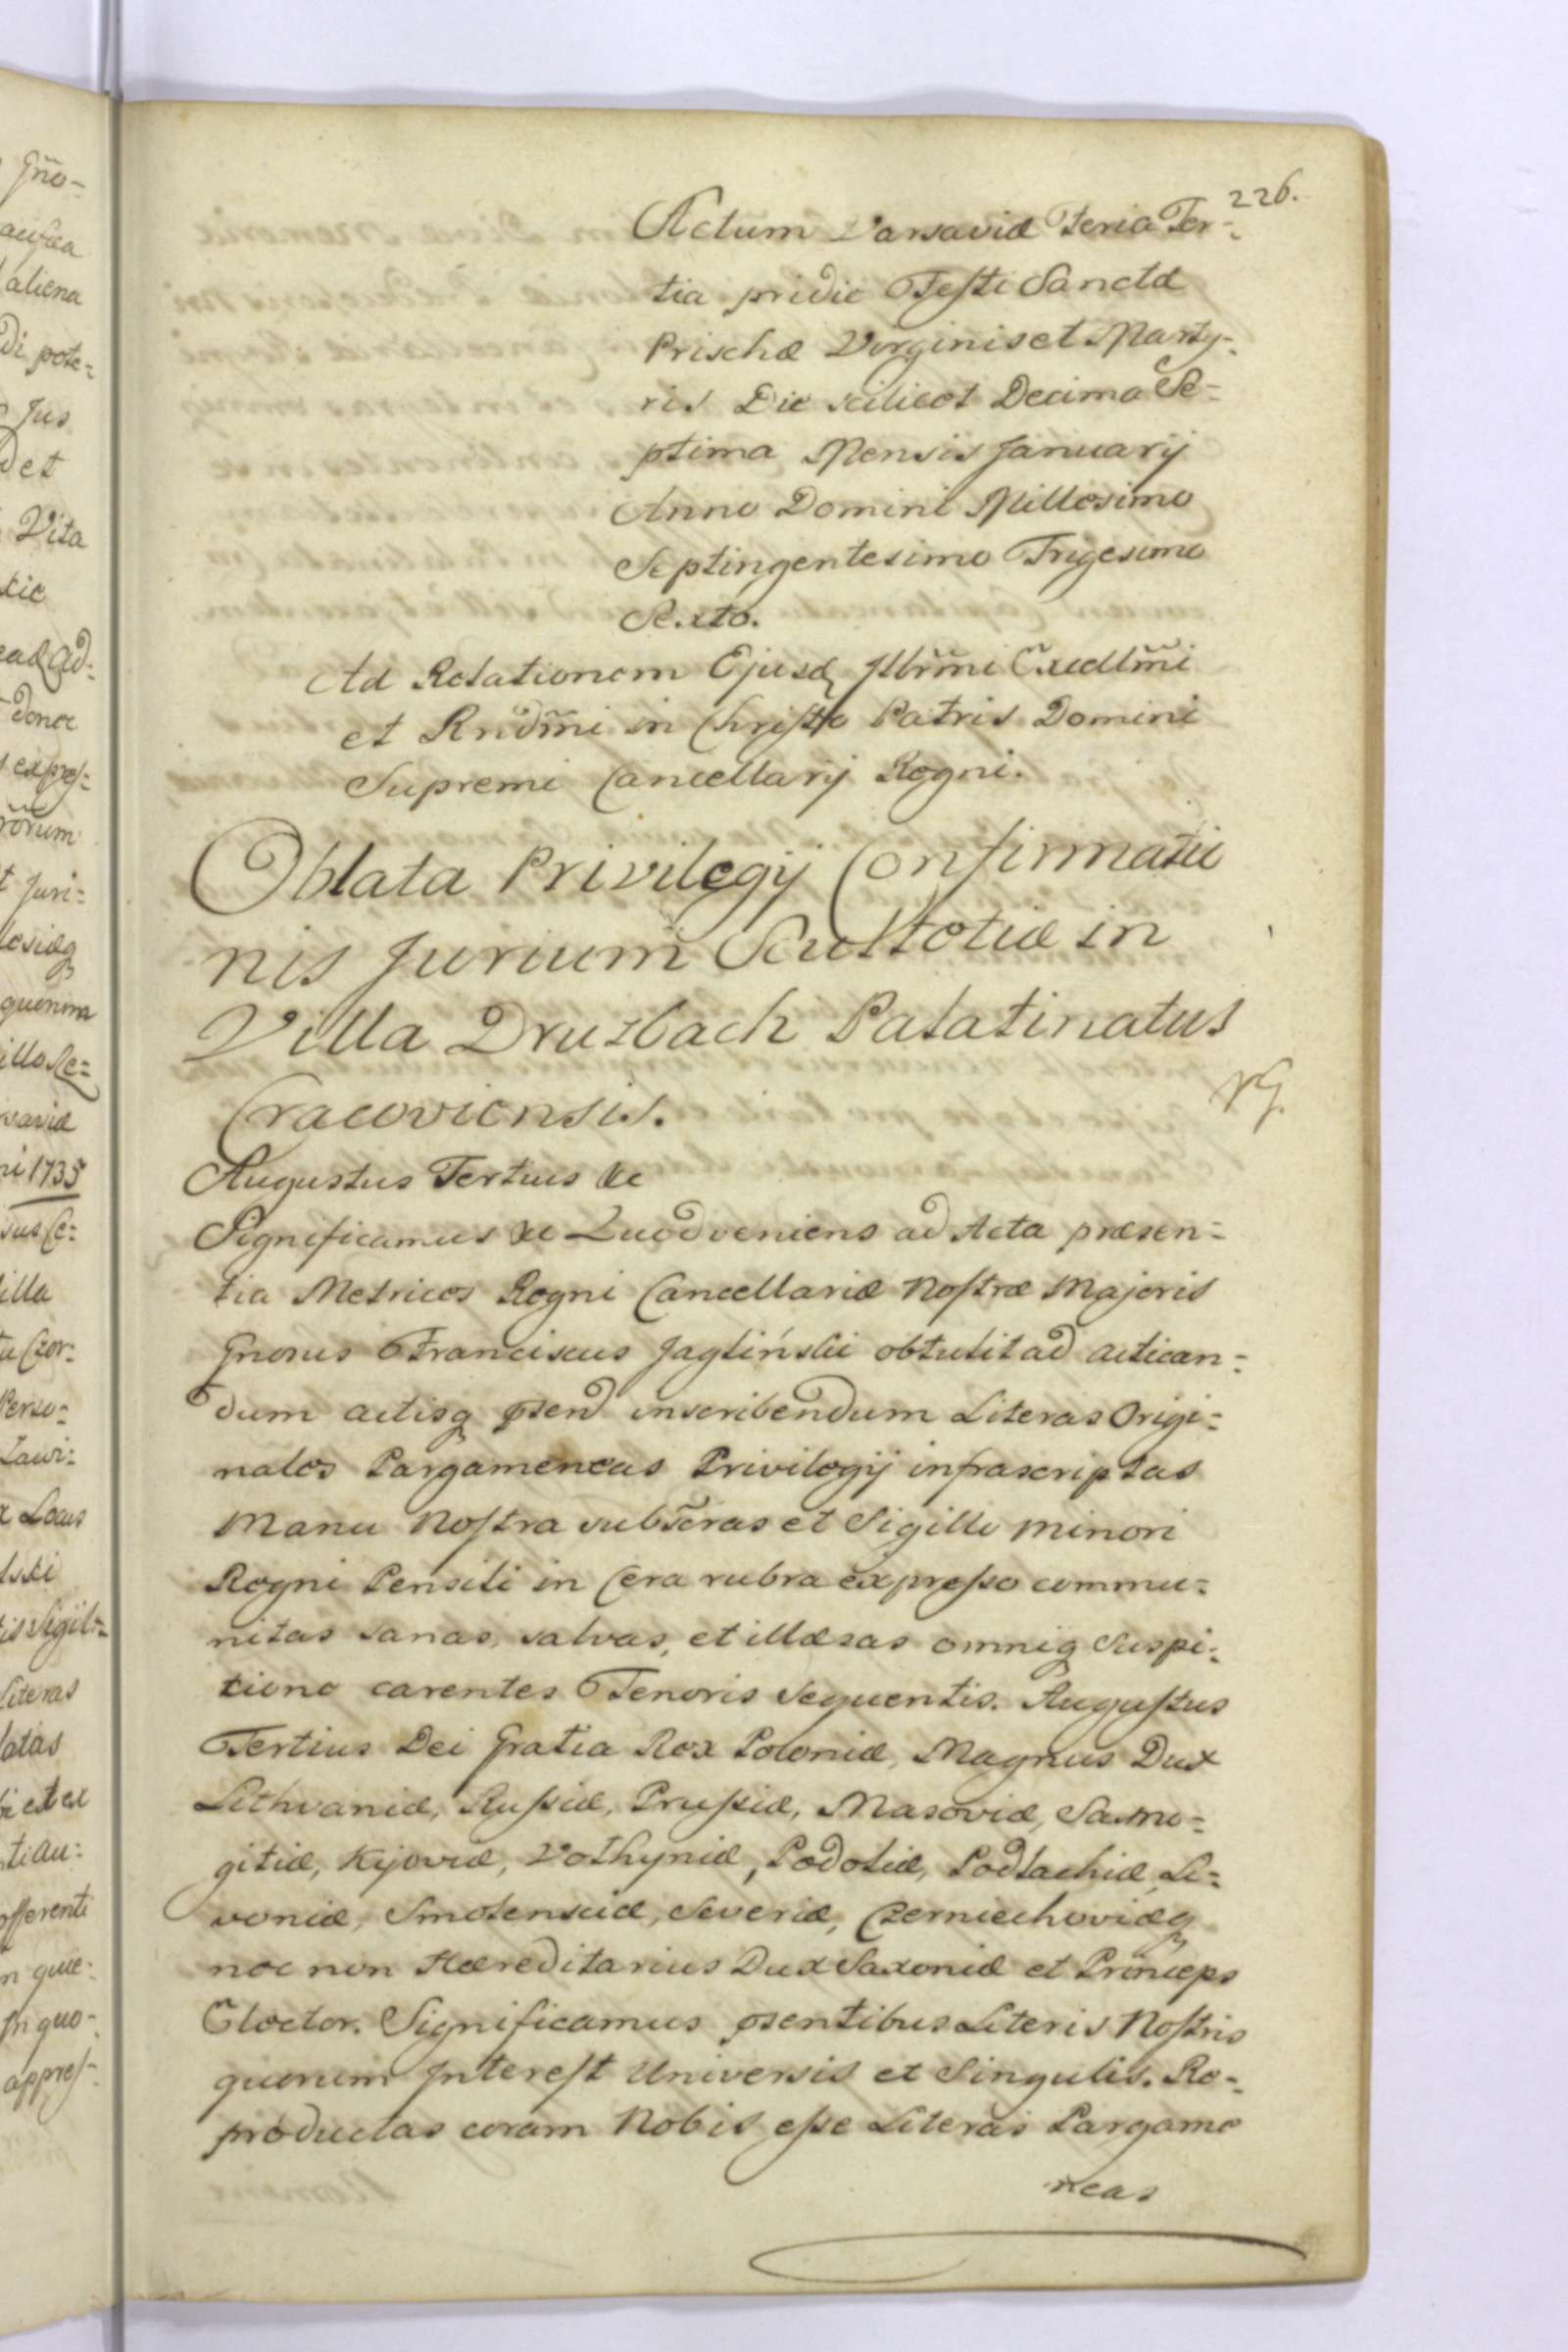 226.
Actum Varsaviæ Feria Ter-
tia pridie Festi Sanctæ
Prischæ Virginis et Marty-
ris Die scilicet Decima Se-
ptima Mensis Januarij
Anno Domini Millesimo
Septingentesimo Trigesimo
Sexto.
Ad Relationem Ejusdq Illr̃mi Excellm̃i
et Rndm̃i in Christo Patris Domini
Supremi Cancellarij Regni.
Oblata Privilegij Confirmatio
nis Jurium Scultetiæ in
Villa Druzbach Palatinatus
Cracoviensis.
Augustus Tertius &c
Significamus &c Quod veniens ad Acta præsen-
tia Metrices Regni Cancellariæ Nostræ Majoris
Gnosus Franciscus Jagliński obtulit ad actican-
dum actisq psend inscribendum Literas Origi-
nales Pargameneas Privilegij infrascriptas
Manu Nostra subscras et Sigillo minori
Regni Pensili in Cera rubra expresso commu-
nitas sanas, salvas, et illæsas omniq Suspi-
tione carentes Tenoris sequentis. Augustus
Tertius Dei Gratia Rex Poloniæ, Magnus Dux
Lithvaniæ, Russiæ, Prussiæ, Masoviæ, Samo-
gitiæ, Kijoviæ, Volhyniæ, Podoliæ, Podlachiæ, Li-
voniæ, Smolensciæ, Severiæ, Czerniechoviæq
nec non Hæreditarius Dux Saxoniæ et Princeps
Elector. Significamus psentibus Literis Nostris
quorum Interest Universis et Singulis. Re-
productas coram Nobis esse Literas Pargame
neas
Gño-
aliena
di pote-
Jus
et
Vita
donec
expres-
rorum
t Juri-
quonima
illo Se-
varia
ni 1735
sus Ce-
illa
u Czor-
Perso-
x Locus
is Sigil-
Literas
latas
i et ex
ti au-
offerenti
n quæ-
In quo-
appres-